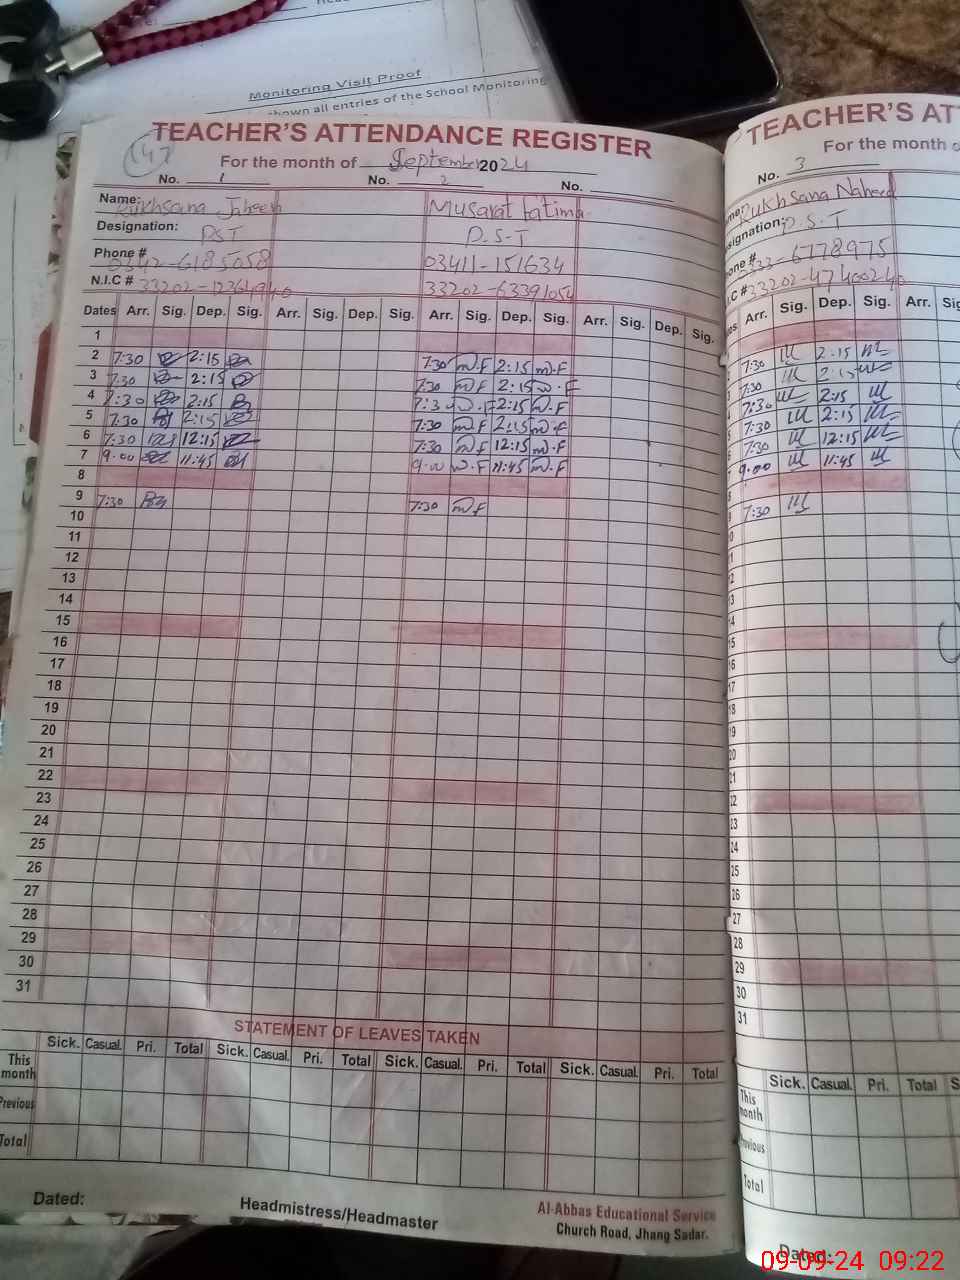 Monitoring Visit Proof
shown all entries of the School Monitoring
TEACHER'S ATTENDANCE REGISTER
147
For the month of September 2024
No. 1 No. 2 No.
Name: Rukhsana Jabeen Musarat Fatima
Designation: PST P.S-T
Phone # 0342-6185058 03411-151634
N.I.C # 33202- 33202-6339105
Dates Arr. Sig. Dep. Sig. Arr. Sig. Dep. Sig. Arr. Sig. Dep. Sig. Arr. Sig. Dep. Sig.
1
2 7:30 2:15 7:30 m.F 2:15 m.F
3 7:30 2:15 7:30 m.F 2:15 m.F
4 7:30 2:15 7:30 m.F 2:15 m.F
5 7:30 2:15 7:30 m.F 2:15 m.F
6 7:30 12:15 7:30 m.F 12:15 m.F
7 9:00 11:45 9:00 m.F 11:45 m.F
8
9 7:30 7:30 m.F
10
11
12
13
14
15
16
17
18
19
20
21
22
23
24
25
26
27
28
29
30
31
STATEMENT OF LEAVES TAKEN
Sick. Casual. Pri. Total Sick. Casual. Pri. Total Sick. Casual. Pri. Total Sick. Casual. Pri. Total
This month
Previous
Total
Dated: Headmistress/Headmaster Al-Abbas Educational Service
Church Road, Jhang Sadar.
TEACHER'S ATT
For the month o
No. 3
Rukhsana Naheed
P.S-T
-6778975
33202-4740024
Arr. Sig. Dep. Sig. Arr. Sig
7:30 2:15
7:30 2:15
7:30 2:15
7:30 2:15
7:30 12:15
9:00 11:45
7:30
10
11
12
13
14
15
16
17
18
19
20
21
22
23
24
25
26
27
28
29
30
31
Sick. Casual. Pri. Total S
This month
Previous
Total
Dated:
09-09-24 09:22